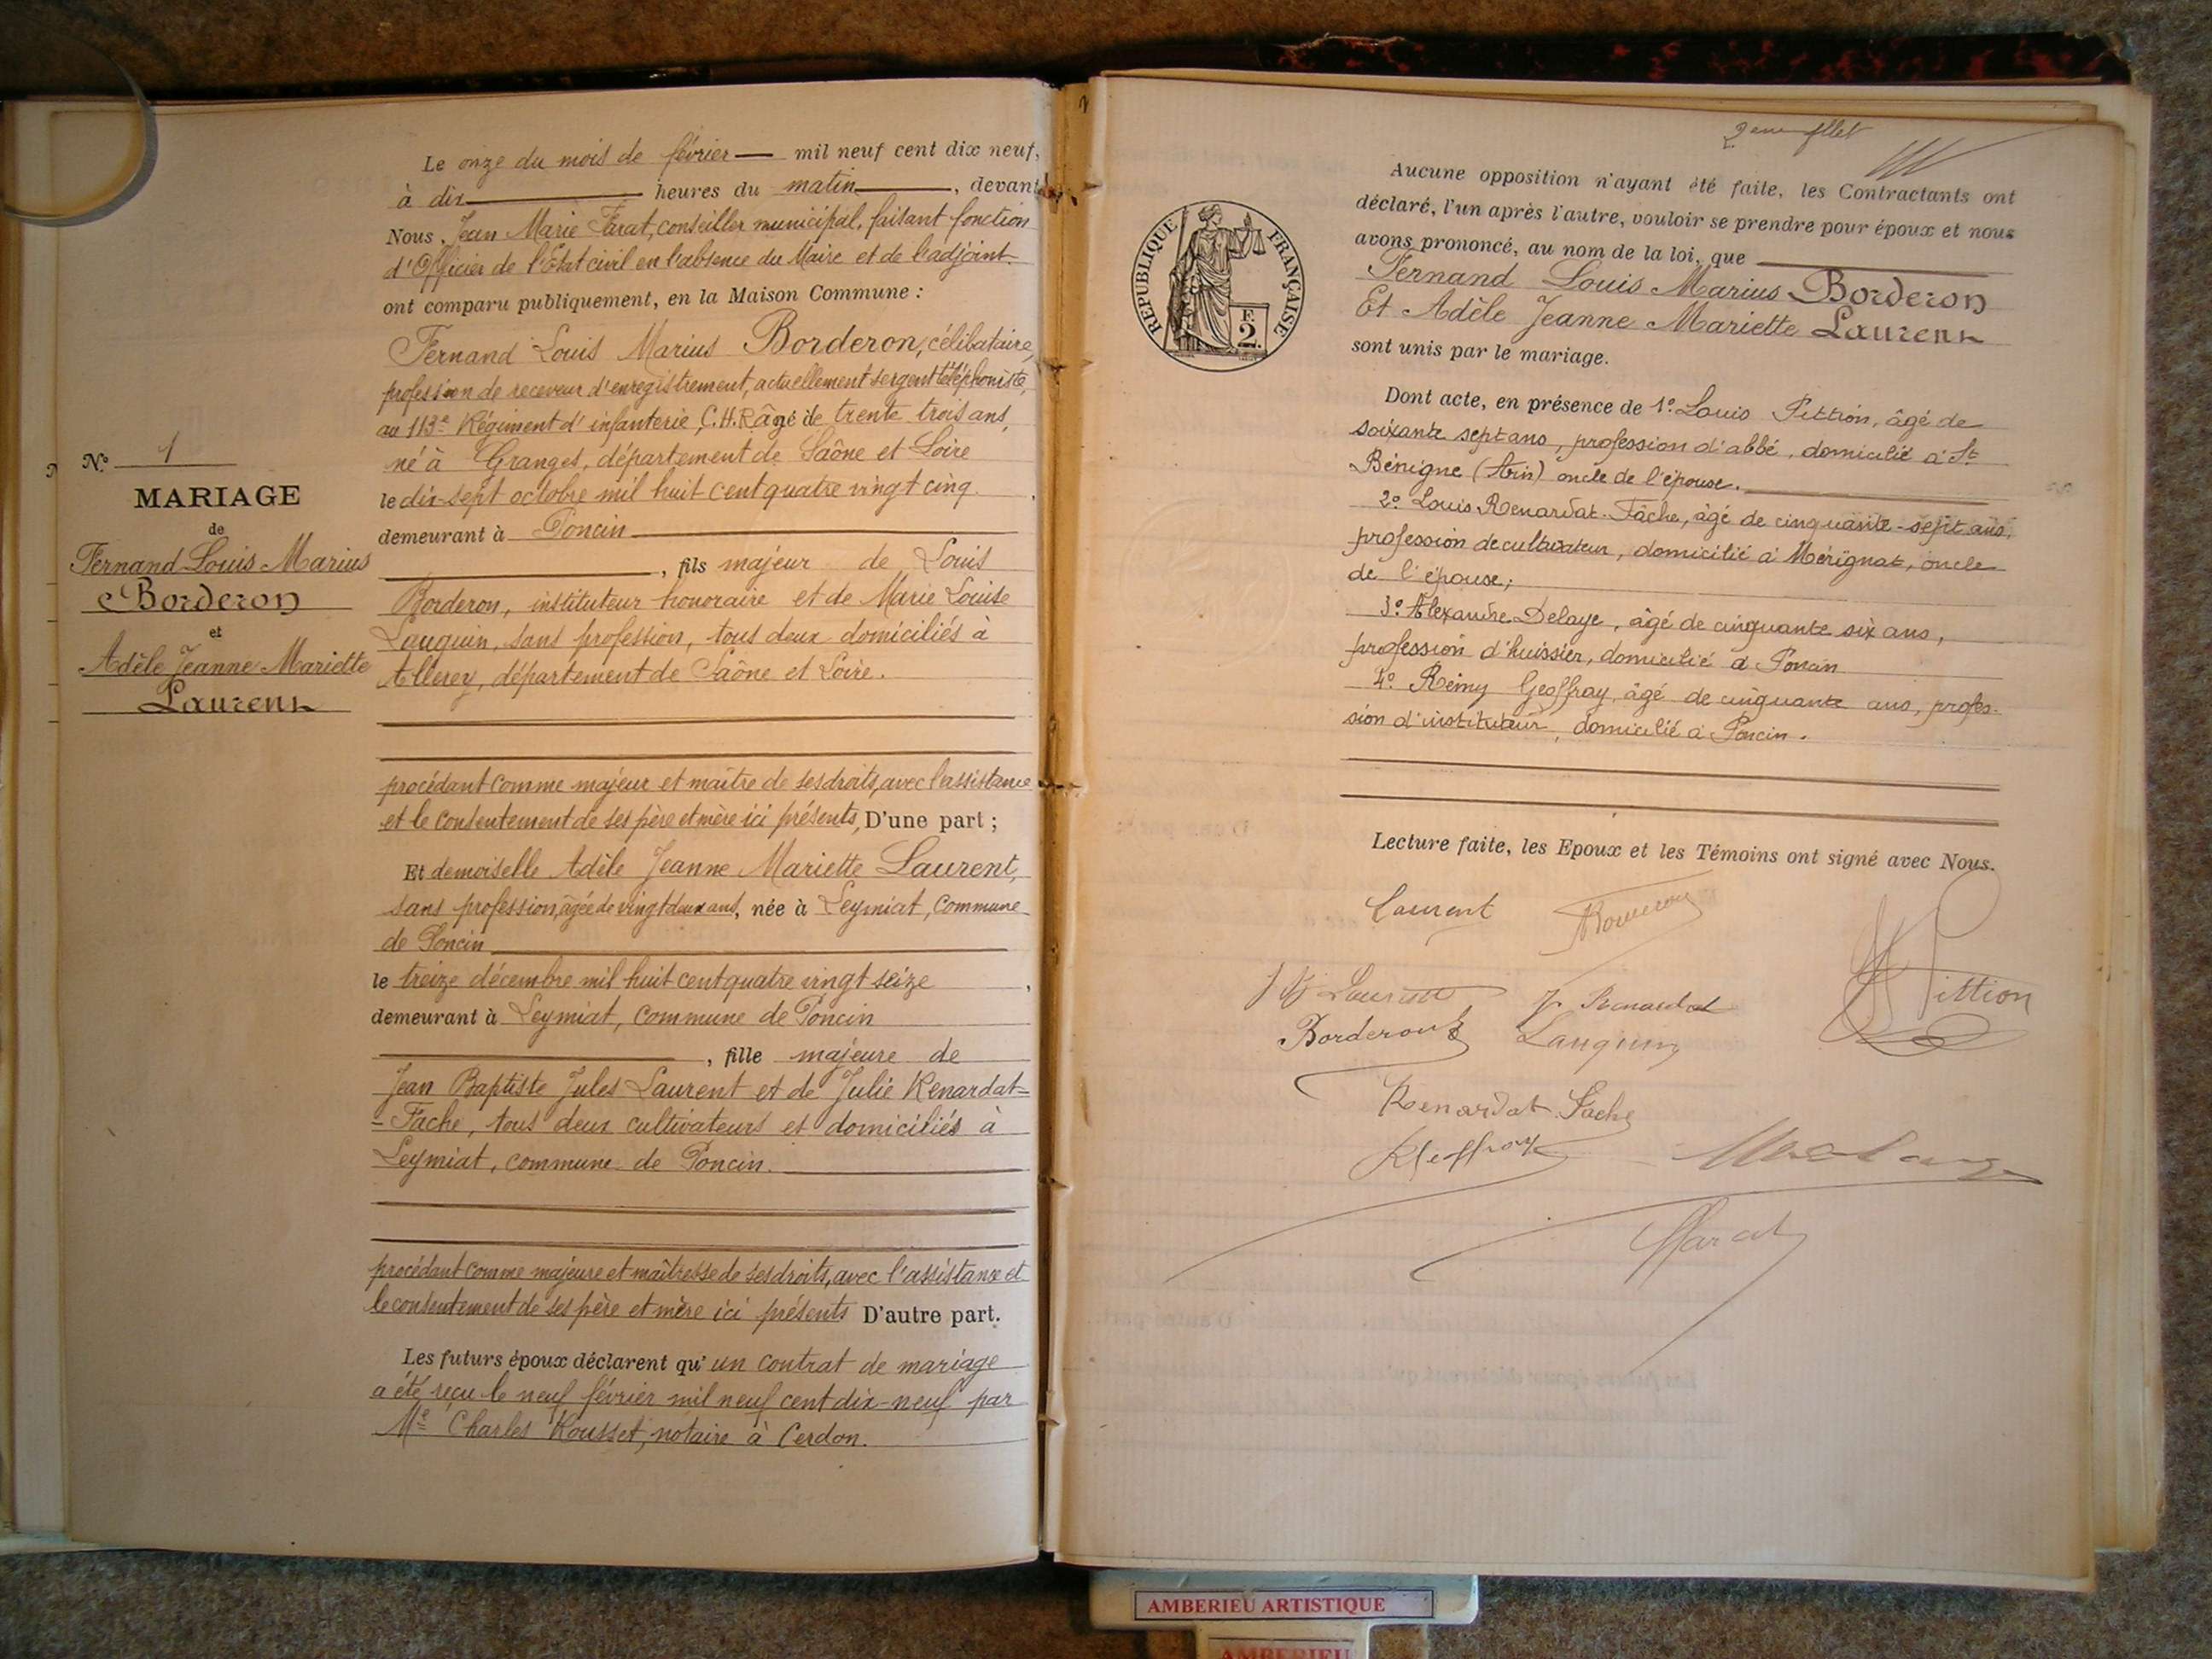 N° 1
MARIAGE
de
Fernand Louis Marius
Borderon
et
Adèle Jeanne Mariette
Laurent
Le onze du mois de février — mil neuf cent dix neuf,
à dix heures du matin, devant
Nous, Jean Marie Farat, conseiller municipal, faisant fonction
d'Officier de l'Etat civil en l'absence du Maire et de l'adjoint.
ont comparu publiquement, en la Maison Commune :
Fernand Louis Marius Borderon, célibataire,
profession de receveur d'enregistrement, actuellement sergent téléphoniste,
au 113e Régiment d'infanterie, C.H.R âgé de trente trois ans,
né à Granges, département de Saône et Loire
le dix-sept octobre mil huit cent quatre vingt cinq ,
demeurant à Poncin
, fils majeur de Louis
Borderon, instituteur honoraire et de Marie Louise
Lauguin, sans profession, tous deux domiciliés à
Allerey, département de Saône et Loire.
procédant comme majeur et maître de ses droits, avec l'assistance
et le consentement de ses père et mère ici présents, D'une part ;
Et demoiselle Adèle Jeanne Mariette Laurent,
sans profession, âgée de vingt deux ans, née à Leymiat, commune
de Poncin
le treize décembre mil huit cent quatre vingt seize ,
demeurant à Leymiat, commune de Poncin
, fille majeure de
Jean Baptiste Jules Laurent et de Julie Renardat-
-Fache, tous deux cultivateurs et domiciliés à
Leymiat, commune de Poncin.
procédant comme majeure et maîtresse de ses droits, avec l'assistance et
le consentement de ses père et mère ici présents D'autre part.
Les futurs époux déclarent qu'un contrat de mariage
a été reçu le neuf février mil neuf cent dix-neuf par
Me Charles Rousset, notaire à Cerdon.
2eme fllet
RÉPUBLIQUE FRANÇAISE
F.
2.
Aucune opposition n'ayant été faite, les Contractants ont
déclaré, l'un après l'autre, vouloir se prendre pour époux et nous
avons prononcé, au nom de la loi, que
Fernand Louis Marius Borderon
Et Adèle Jeanne Mariette Laurent
sont unis par le mariage.
Dont acte, en présence de 1° Louis Pittion, âgé de
soixante sept ans, profession d'abbé, domicilié à St
Bénigne (Ain) oncle de l'épouse.
2° Louis Renardat-Fache, âgé de cinquante-sept ans,
profession de cultivateur, domicilié à Mérignat, oncle
de l'épouse;
3° Alexandre Delaye, âgé de cinquante six ans,
profession d'huissier, domicilié à Poncin
4° Rémy Geoffray, âgé de cinquante ans, profes-
sion d'instituteur, domicilié à Poncin.
Lecture faite, les Epoux et les Témoins ont signé avec Nous.
Laurent
Laurent
J. Renardat
Pittion
Borderon
Lauguin
Renardat-Fache
Geoffray
Farat
AMBERIEU ARTISTIQUE
AMBERIEU